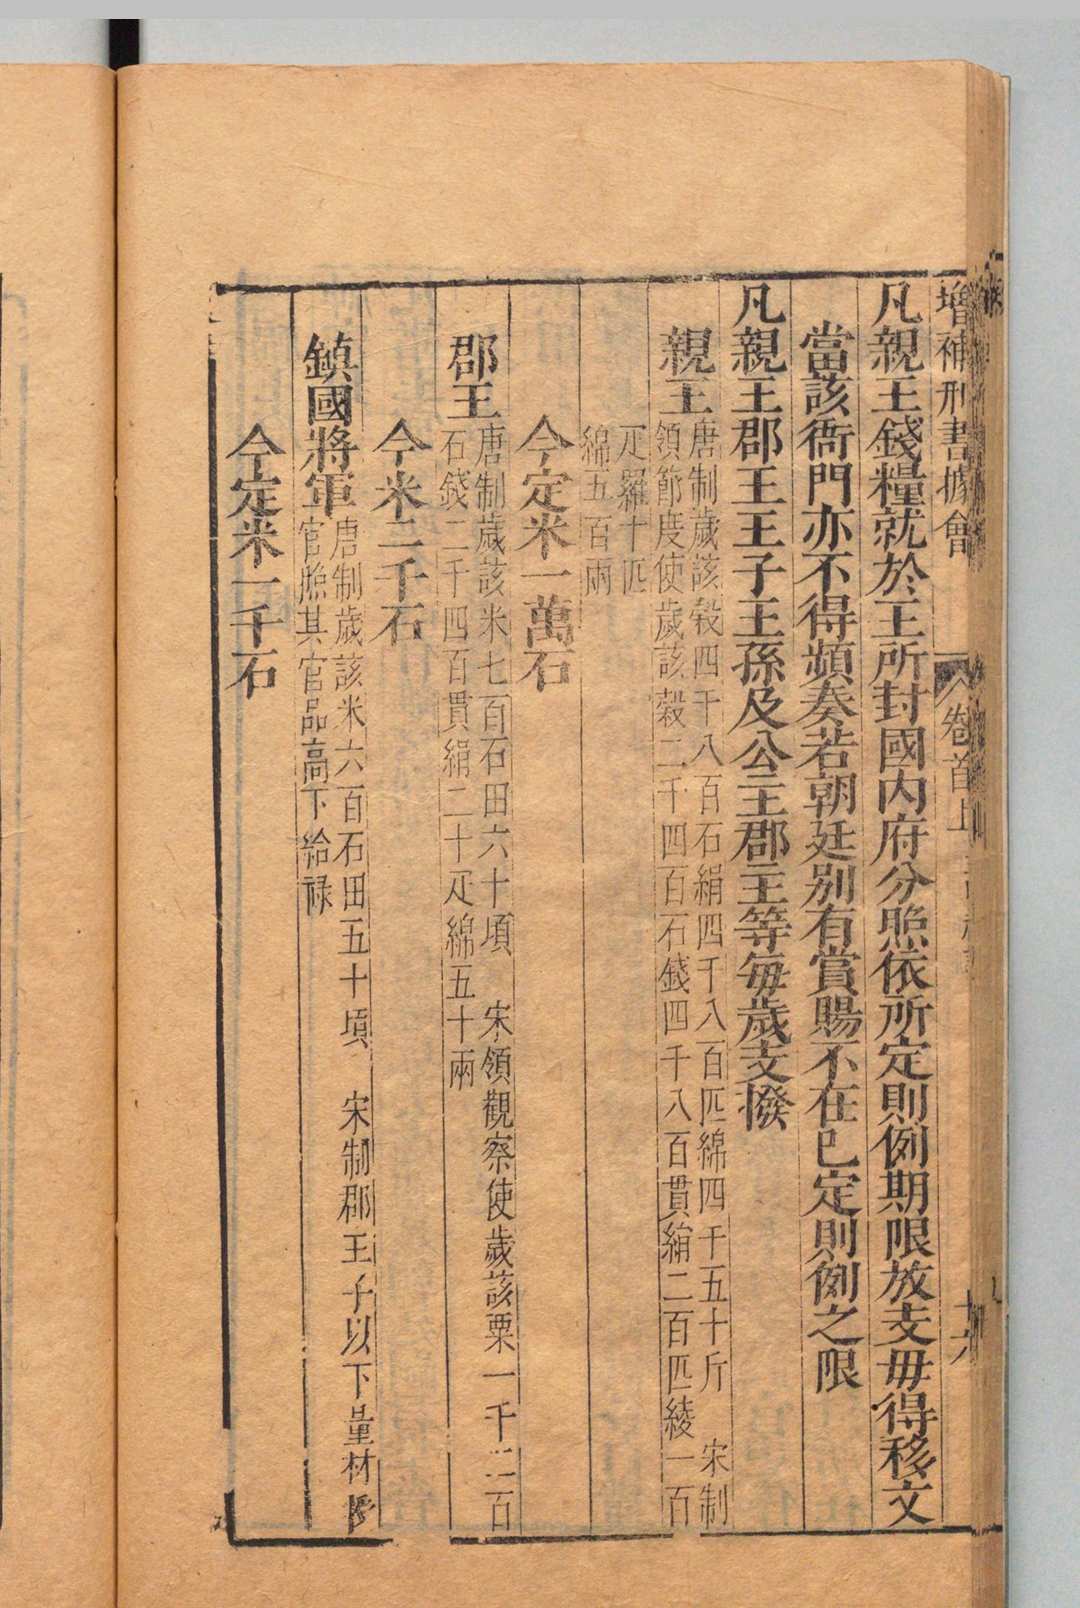 增補刑書據會
卷首上
十六
凡親王錢糧就於王所封國內府分照依所定則例期限放支毋得移文
當該衙門亦不得頻奏若朝廷別有賞賜不在已定則例之限
凡親王郡王王子王孫及公主郡主等每歲支撥
親王
唐制歲該榖四千八百石絹四千八百匹綿四千五十斤 宋制
領節度使歲該榖二千四百石錢四千八百貫絹二百匹綾一百
疋羅十匹
綿五百兩
今定米一萬石
郡王
唐制歲該米七百石田六十頃 宋領觀察使歲該粟一千二百
石錢二千四百貫絹二十疋綿五十兩
今米二千石
鎮國將軍
唐制歲該米六百石田五十頃 宋制郡王子以下量材
官照其官品高下給祿
今定米一千石